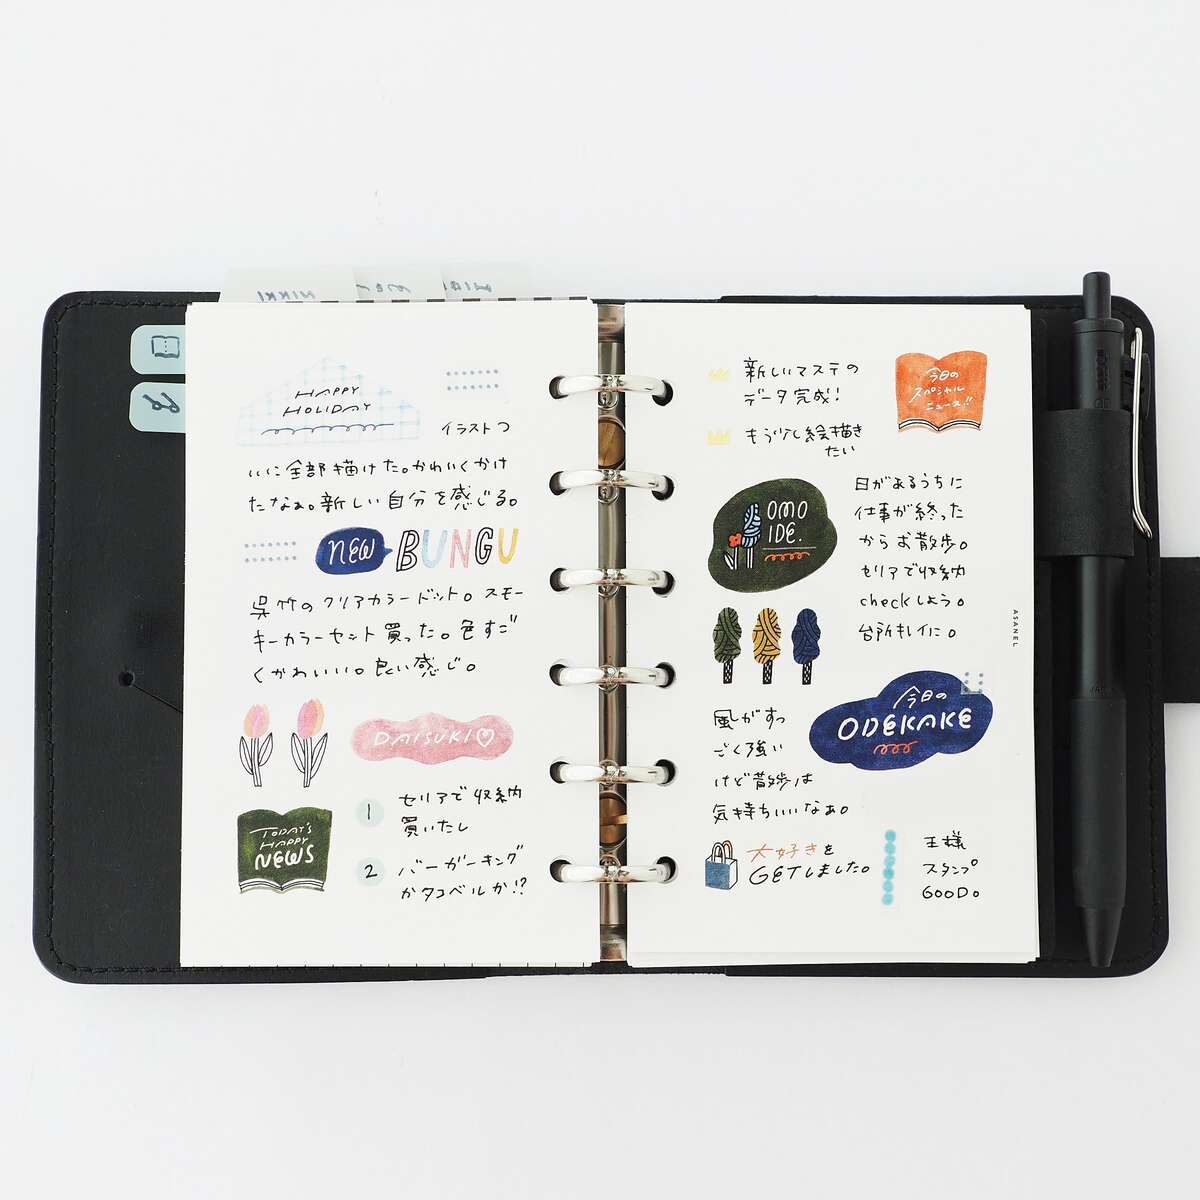 NIKKI
HAPPY
HOLIDAY
イラストつ
いに全部描けた。かわいくかけ
たなぁ。新しい自分を感じる。
NEW BUNGU
呉竹のクリアカラードット。スモー
キーカラーセット買った。色すご
くかわいい。良い感じ。
DAISUKI♡
TODAY'S
HAPPY
NEWS
1 セリアで収納
買いたし
2 バーガーキング
かタコベルか!?
新しいマステの
データ完成!
もう少し絵描き
たい
今日の
スペシャル
ニュース!!
OMO
IDE.
日があるうちに
仕事が終った
からお散歩。
セリアで収納
checkしよう。
台所キレイに。
ASANEL
風がすっ
ごく強い
けど散歩は
気持ちいいなぁ。
今日の
ODEKAKE
大好きを
GETしました。
王様
スタンプ
GOOD。